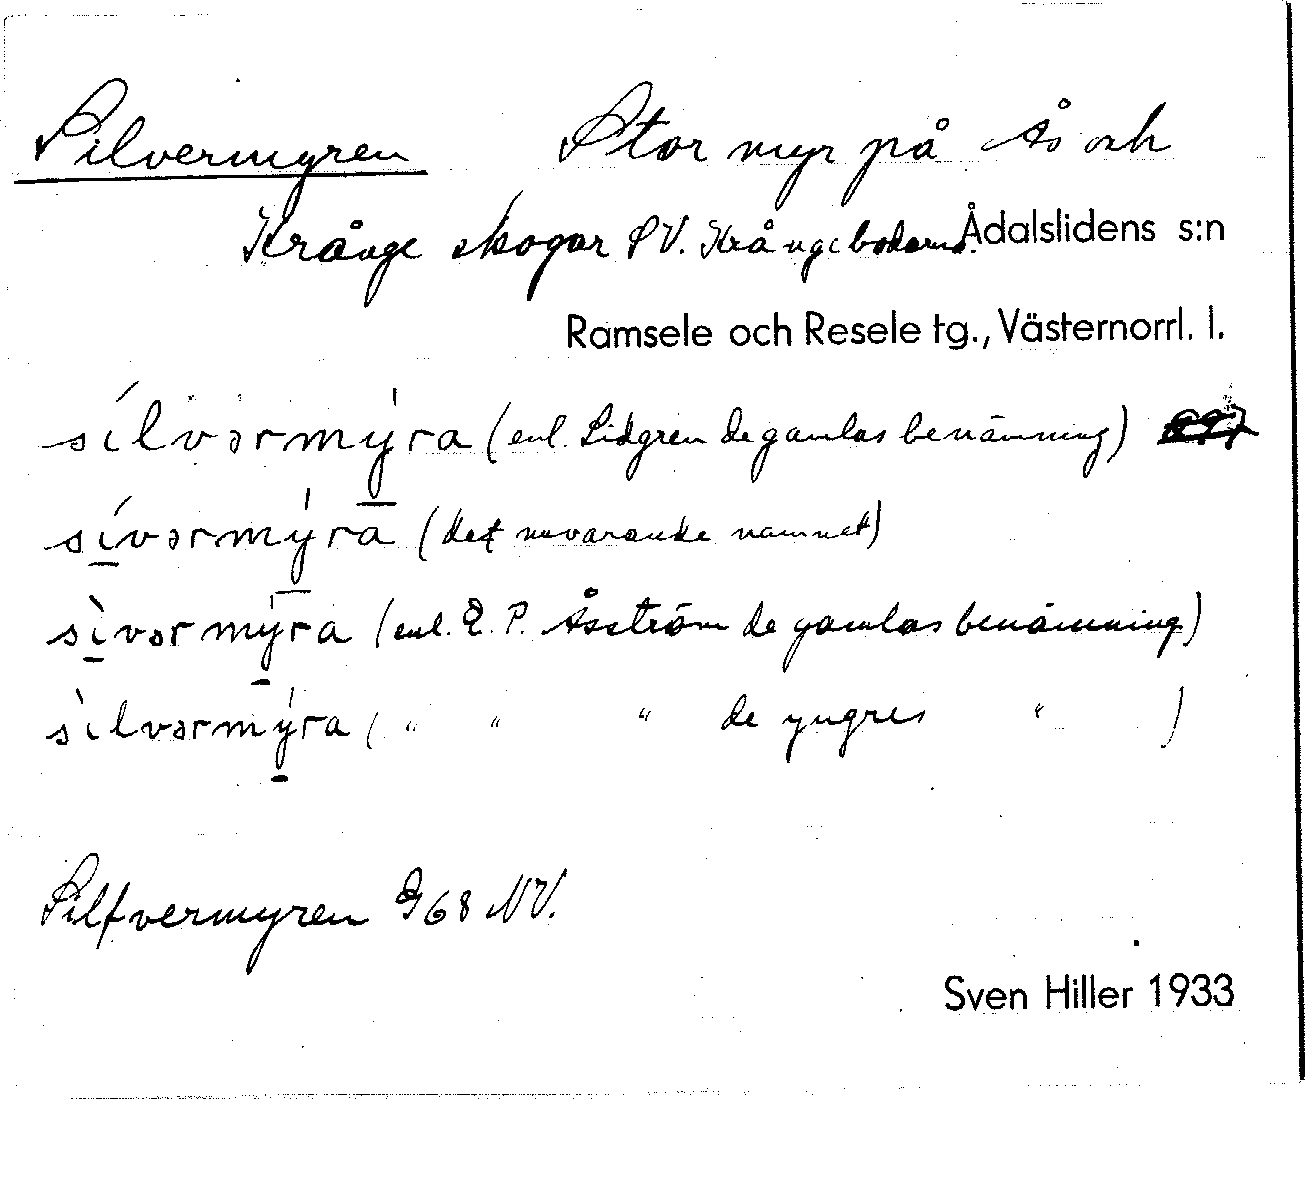 Silvermyren Stor myr på Ås och
Krånge skogar SV. Krångebodarna. Ådalslidens s:n
Ramsele och Resele tg., Västernorrl. l.
sílvərmýra (enl. Lidgren de gamlas benämning)
sívərmýra (det nuvarande namnet)
sìvərmýra (enl. E. P. Åsström de gamlas benämning)
sìlvərmýra ( " " " de yngres " )
Silfvermyren G68 NV.
Sven Hiller 1933